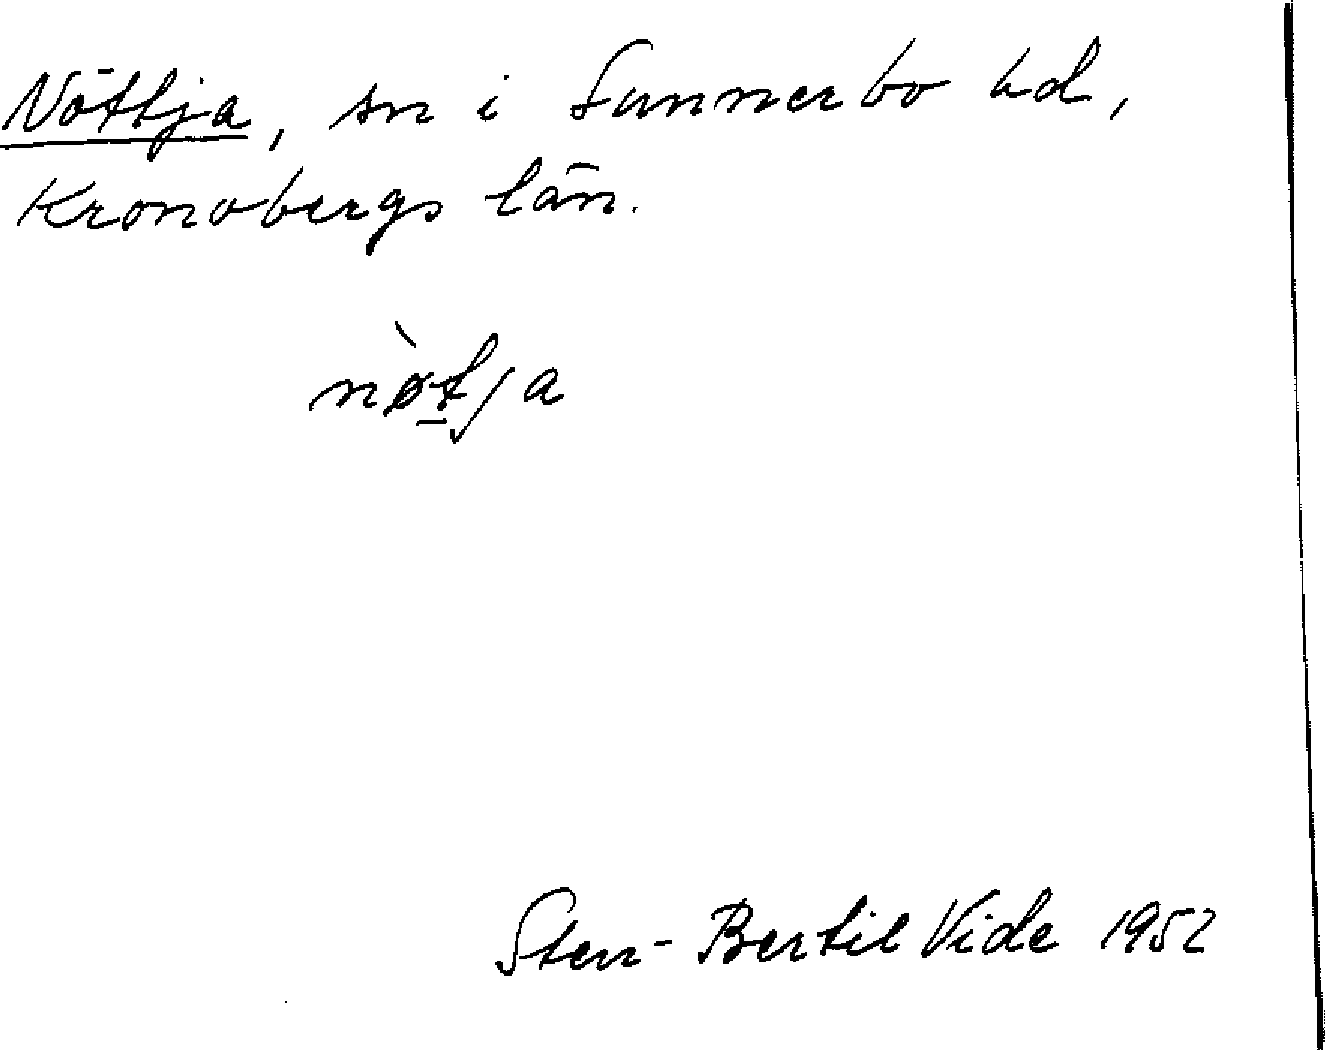 Nöttja, sn i Sunnerbo hd,
Kronobergs län.
nø̀t̲ja
Sten-Bertil Vide 1952